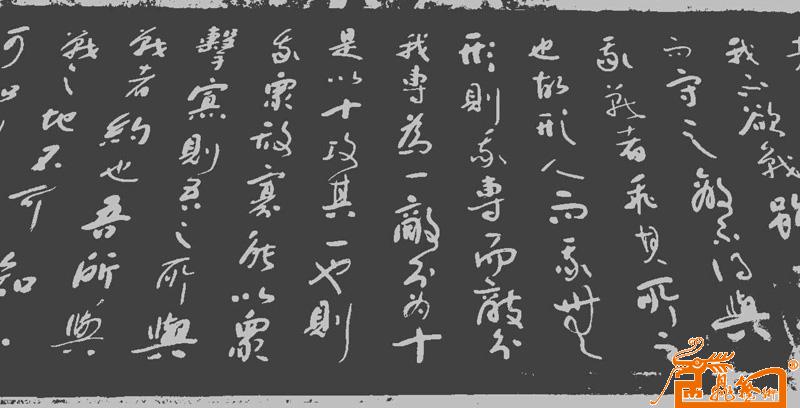 我不欲戰雖
而守之敵不得與
我戰者乖其所之
也故形人而我無
形則我專而敵分
我專為一敵分为十
是以十攻其一也則
我眾敌寡能以眾
擊寡則吾之所與
戰者約也吾所與
戰之地不可知
可